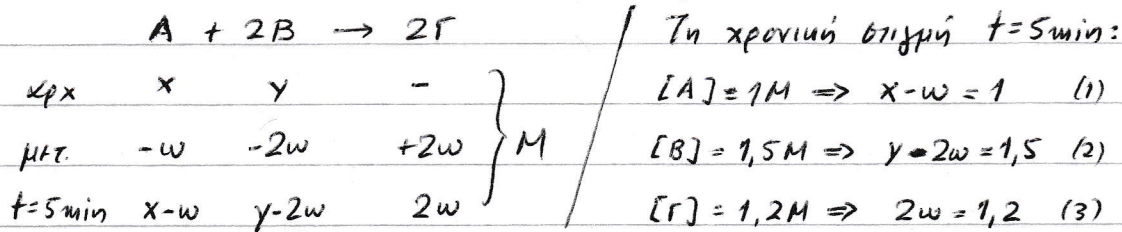 A + 2B → 2Γ
αρχ x y -
μετ. -ω -2ω +2ω } M
t=5min x-ω y-2ω 2ω
Τη χρονική στιγμή t=5min:
[A]=1M ⇒ x-ω=1 (1)
[B]=1,5M ⇒ y-2ω=1,5 (2)
[Γ]=1,2M ⇒ 2ω=1,2 (3)